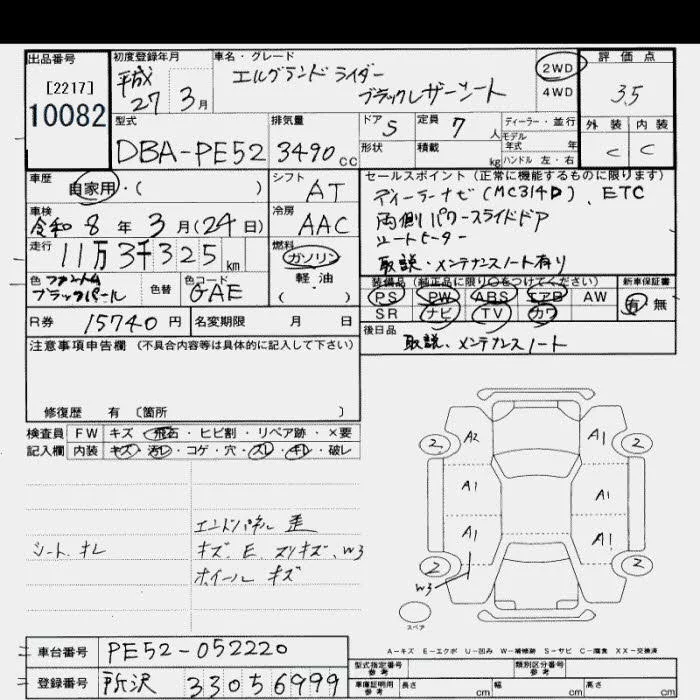 出品番号 初度登録年月 車名・グレード 評価点
[2217] 平成 エルグランドライダー 2WD
10082 27年 3月 ブラックレザーシート 4WD 3.5
型式 排気量 ドア 5 定員 7人 ディーラー・並行 外装 内装
モデル年式 年
DBA-PE52 3490cc 形状 積載 kg ハンドル 左・右 C C
車歴 シフト セールスポイント(正常に機能するものに限ります)
自家用・( ) AT ディーラーナビ(MC314D)、ETC
車検 冷房 両側パワースライドドア
令和 8年 3月(24日) AAC シートヒーター
走行 燃料 取説・メンテナンスノート有り
11万3千325km ガソリン
色 ファントムブラックパール 色替 色コード GAE 軽油 ( )
装備品(純正品に限り○をつけてください) 新車保証書
PS PW ABS エアB AW 有 無
SR ナビ TV カワ
R券 15740円 名変期限 月 日
後日品 取説、メンテナンスノート
注意事項申告欄 (不具合内容等は具体的に記入して下さい)
修復歴 有 〔箇所 〕
検査員 FW キズ・飛石・ヒビ割・リペア跡・×要
記入欄 内装 キズ・汚レ・コゲ・穴・スレ・キレ・破レ
エンドパネル 歪
シート キレ キズ、E、スリキズ、W3
ホイール キズ
2 A2 A1 2
A1 A1
A1 A1
2 2
W3
スペア
A-キズ E-エクボ U-凹み W-補修跡 S-サビ C-腐食 XX-交換済
車台番号 PE52-052220
型式指定番号 参考 類別区分番号 参考
登録番号 所沢 330 5 6999
車庫証明用 参考 長さ cm 幅 cm 高さ cm